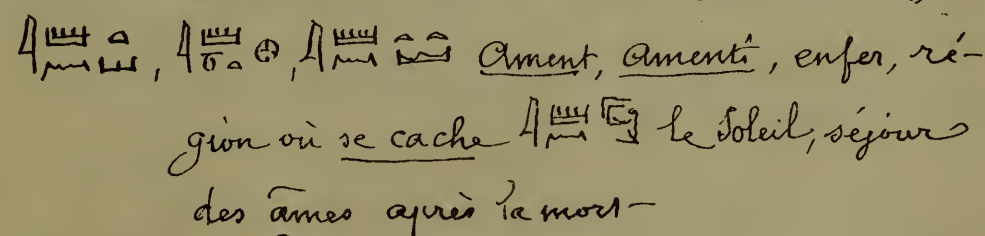 𓇋𓏠𓈖𓏏𓈉, 𓇋𓏠𓏏𓊖, 𓇋𓏠𓈖 Ament, Amenti, enfer, ré-
gion où se cache 𓇋𓏠𓈖 le Soleil, séjour
des âmes après la mort-